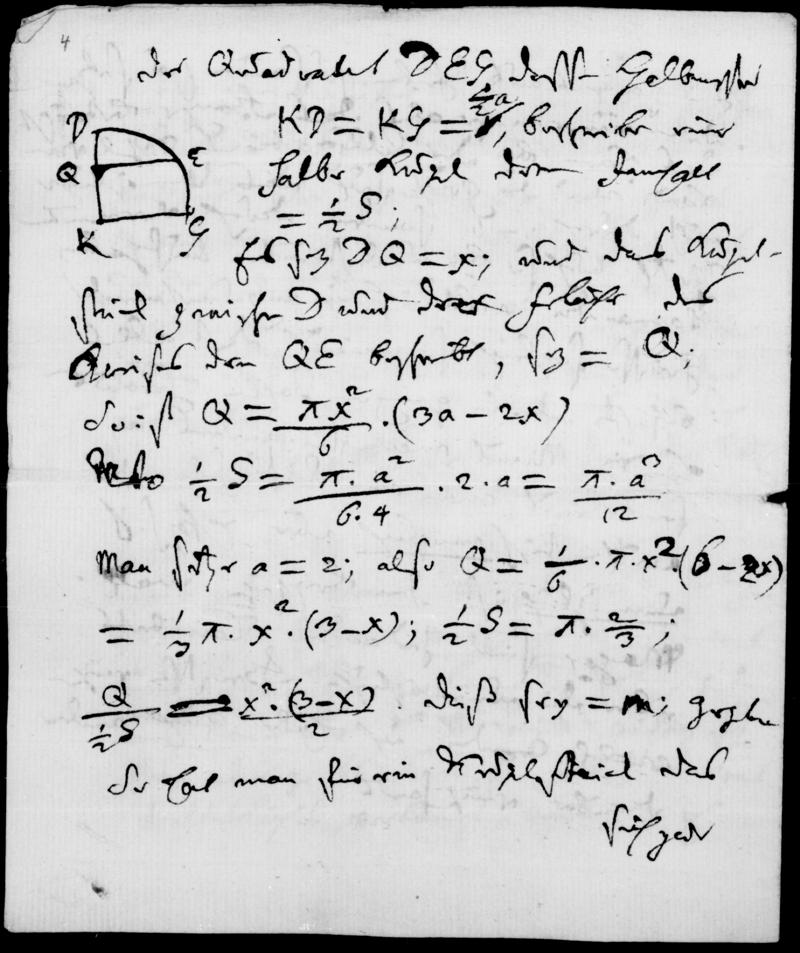 4
der Quadrant DEG dessen Halbmesser
KD = KG = ½a, beschreibe eine
halbe Kugel deren Innhalt
= ½ S;
D
Q
E
K
G
Es sey DQ = x; und das Kugel-
stück zwischen D und der Fläche des
Kreises den QE beschreibt, sey = Q;
So ist Q = πx²/6 . (3a − 2x)
Also ½ S = π. a²/6. 4 . 2. a = π. a³/12
Man setze a = 2; also Q = 1/6 . π. x² (6 − 2x)
= 1/3 π. x². (3 − x); ½ S = π. 2/3;
Q/½S = x². (3−x)/2 . dieß sey = m; gegeben
So hat man für ein Kugelstück das